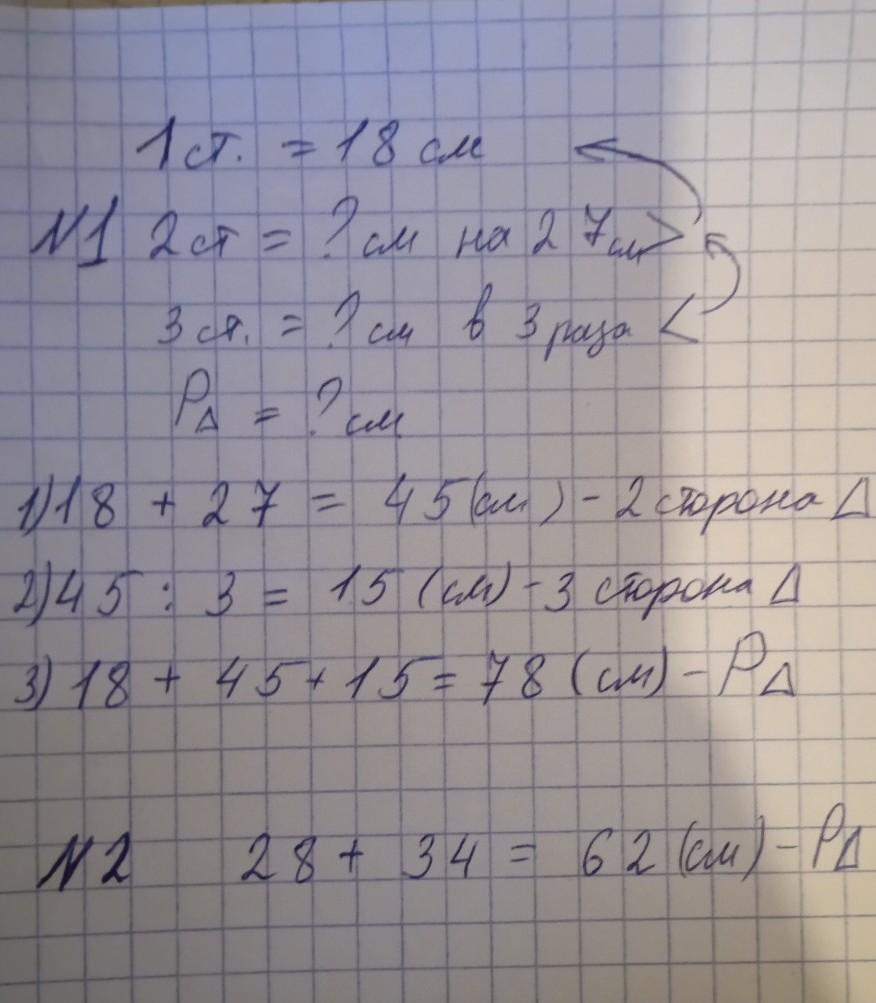 1 ст. = 18 см
№1 2 ст = ? см на 27 см >
3 ст. = ? см в 3 раза <
P△ = ? см
1) 18 + 27 = 45 (см) - 2 сторона △
2) 45 : 3 = 15 (см) - 3 сторона △
3) 18 + 45 + 15 = 78 (см) - P△
№2 28 + 34 = 62 (см) - P△